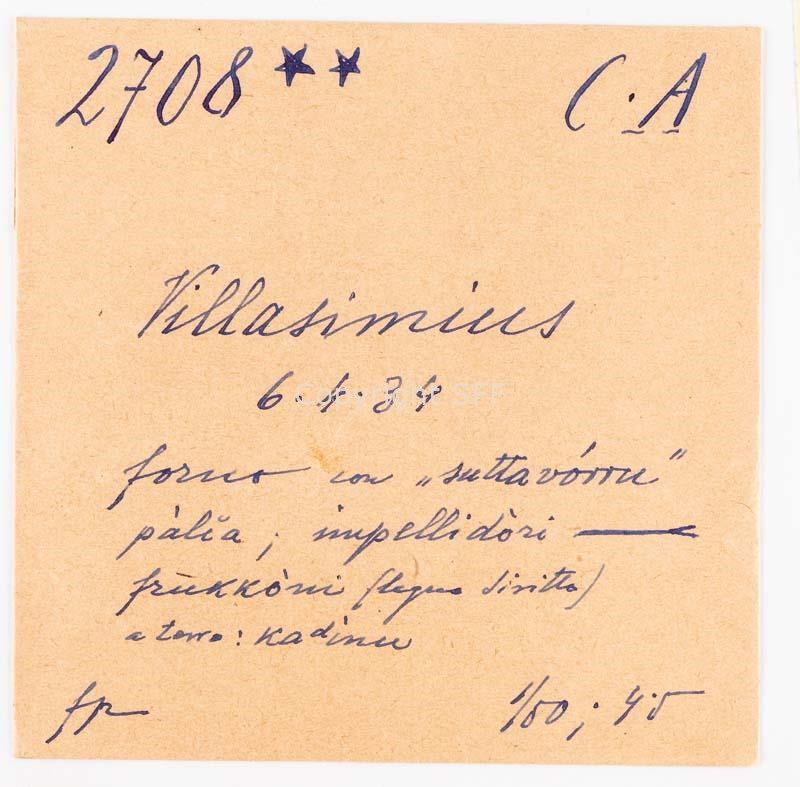 2708 ★★ C.A
Villasimius
6.4.34
Copyright SFF
forno con „suttavórru"
pàlĭa; impellidòri
frŭkkòni (legno diritto)
a terra: kadinu
fp 1/50; 4.5